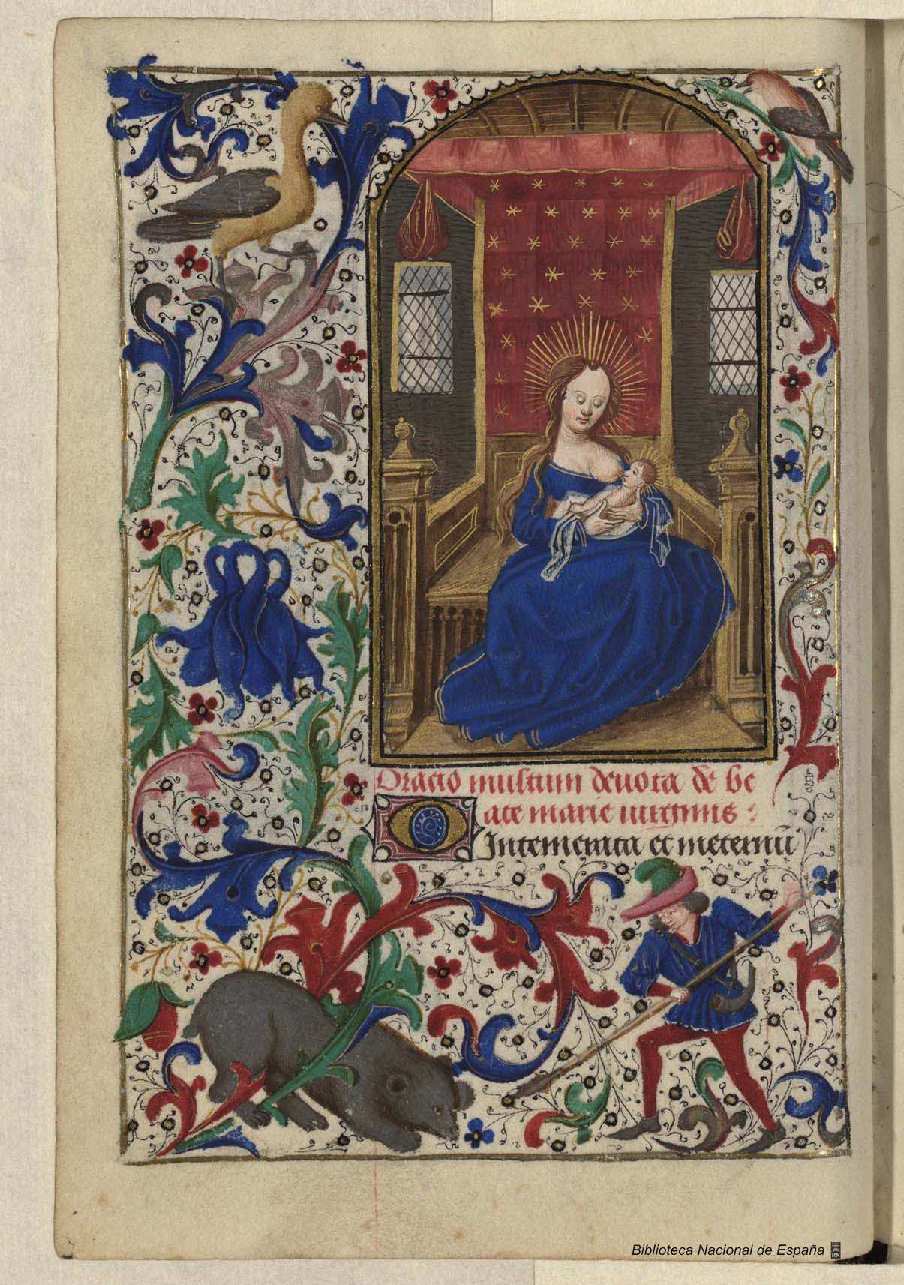 Oracio multum deuota de be
ate marie uirginis :
Intemerata et in eternu
Biblioteca Nacional de España